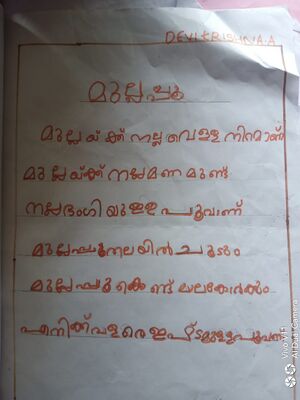 DEVIKRISHNA.A
മുല്ലപ്പൂ
മുല്ലയ്ക്ക് നല്ല വെള്ള നിറമാണ്
മുല്ലയ്ക്ക് നല്ല മണ മുണ്ട്
നല്ല ഭംഗി യുള്ള പൂവാണ്
മുല്ലപ്പൂ തലയിൽ ചൂടും
മുല്ലപ്പൂ കൊണ്ട് മാല കോർക്കും
എനിക്ക് വളരെ ഇഷ്ടമുള്ള പൂവാണ്
Vivo V11
AI Dual Camera